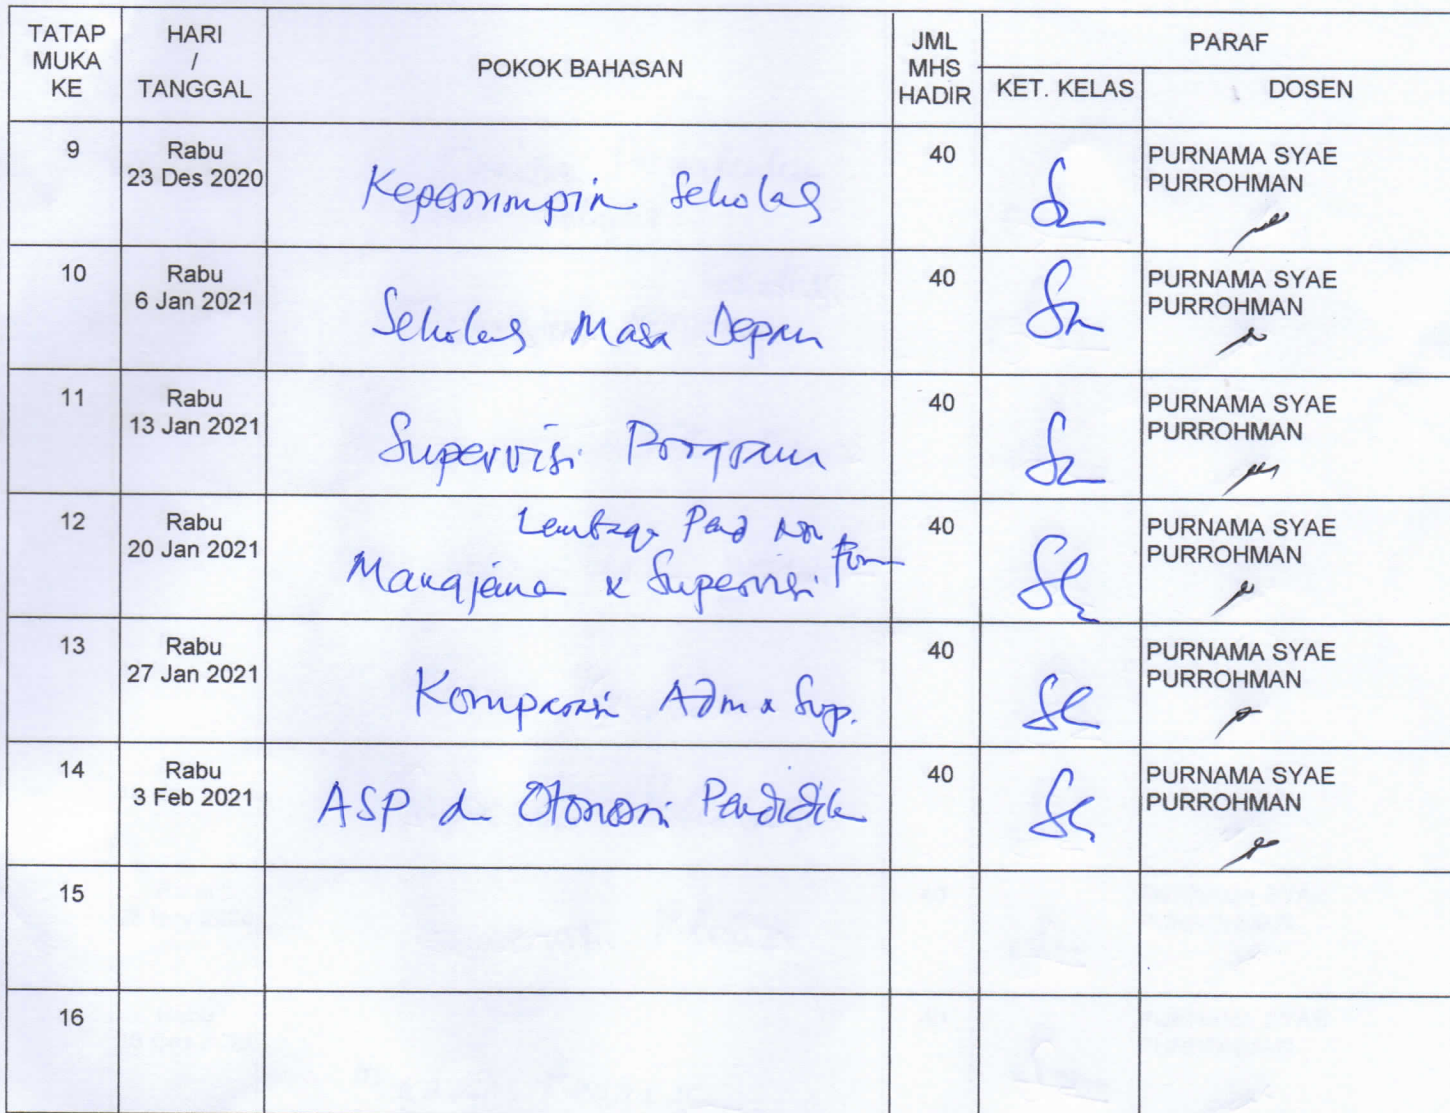 TATAP MUKA KE
HARI / TANGGAL
POKOK BAHASAN
JML MHS HADIR
PARAF
KET. KELAS
DOSEN
9
Rabu
23 Des 2020
Kepemimpin Sekolah
40
PURNAMA SYAE
PURROHMAN
10
Rabu
6 Jan 2021
Sekolah Masa Depan
40
PURNAMA SYAE
PURROHMAN
11
Rabu
13 Jan 2021
Supervisi Program
40
PURNAMA SYAE
PURROHMAN
12
Rabu
20 Jan 2021
Lembaga Pend Non Form
Manajemen & Supervisi
40
PURNAMA SYAE
PURROHMAN
13
Rabu
27 Jan 2021
Komparasi Adm & Sup.
40
PURNAMA SYAE
PURROHMAN
14
Rabu
3 Feb 2021
ASP dn Otonomi Pendidik
40
PURNAMA SYAE
PURROHMAN
15
16